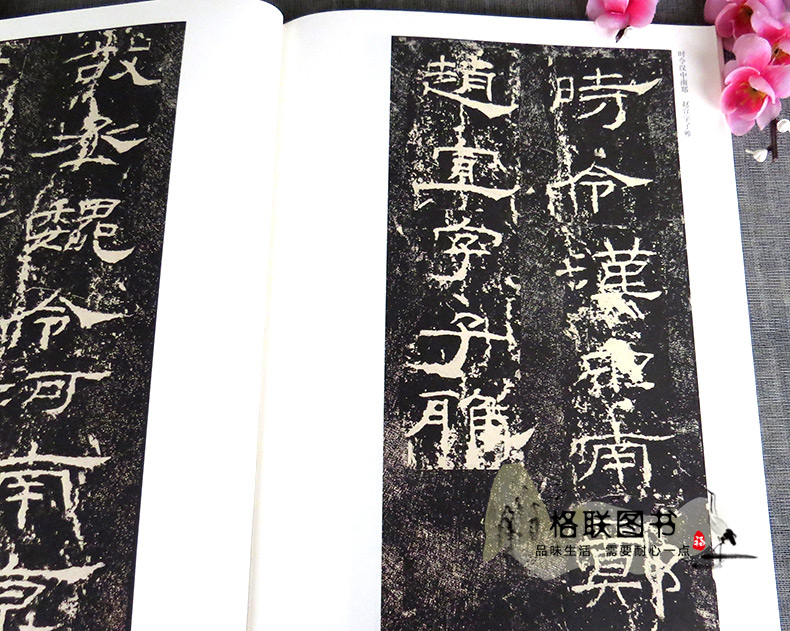 時令漢中南鄭
趙宣字子雅
时令汉中南郑 赵宣字子雅
丞魏令河南京
格联图书
品味生活 需要耐心一点
福